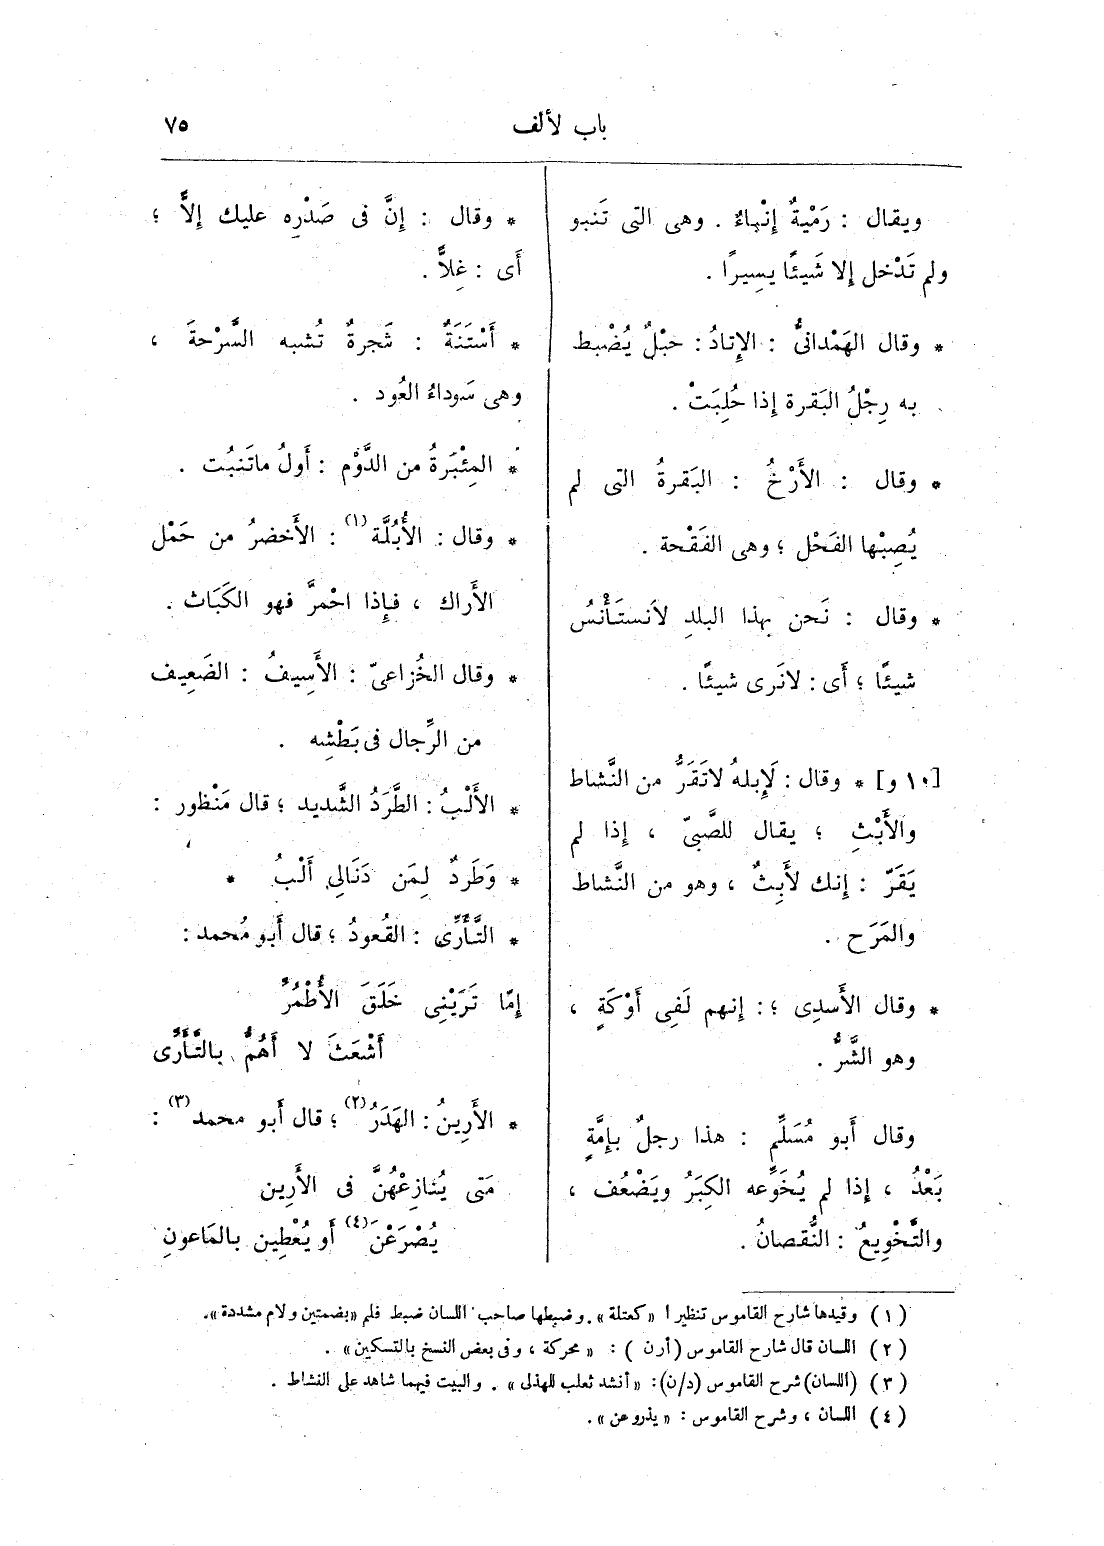 باب لألف
٧٥
ويقال : رَمْيةٌ إِنْهاءٌ . وهى التى تَنبو
ولم تَدْخل إلا شَيئًا يسِيرًا .
* وقال الهَمْدانىُّ : الإِتادُ : حبْلٌ يُضْبط
به رِجْلُ البَقرة إذا حُلِبَتْ .
* وقال : الأَرْخُ : البَقرةُ التى لم
يُصِبْها الفَحْل ؛ وهى الفَقْحة .
* وقال : نَحن بهذا البلدِ لاَنستَأْنسُ
شيئًا ؛ أَى : لانَرى شيئًا .
[١٠ و] * وقال : لَإِبلهُ لاتَقَرُّ من النَّشاط
والأَبْثِ ؛ يقال للصَّبىّ ، إذا لم
يَقَرّ : إنك لأَبِثٌ ، وهو من النَّشاط
والمَرَح .
* وقال الأَسدِى ؛ : إنهم لَفِى أَوْكَةٍ ،
وهو الشَّرُّ .
وقال أَبو مُسَلِّم : هذا رجلٌ بإِمَّةٍ
بَعْدُ ، إذا لم يُخَوِّعه الكِبَرُ ويَضْعُف ،
والتَّخْوِيعُ : النُّقصانُ .
* وقال : إنَّ فى صَدْرِه عليك إلاًّ ؛
أَى : غِلاًّ .
* أَسْتَنَةٌ : شَجرةٌ تُشبه السَّرْحةَ ،
وهى سَوداءُ العُود .
* المِئْبَرةُ من الدَّوْم : أَولُ ماتَنبُت .
* وقال : الأُبُلَّة (١) : الأَخضرُ من حَمْل
الأَراك ، فإِذا احْمرَّ فهو الكَبَاث .
* وقال الخُزاعىّ : الأَسِيفُ : الضَعِيف
من الرِّجال فى بَطْشِه .
* الأَلْبُ : الطَّرَدُ الشَّديد ؛ قال مَنْظور :
* وَطَردٌ لِمَن دَنَالِى أَلْبُ *
* التَّأَرِّى : القُعودُ ؛ قال أَبو مُحمد :
إمّا تَرَيْنِى خَلَقَ الأُطْمُرِّ
أَشْعَثَ لا أَهُمُّ بالتَّأَرِّى
* الأَرِينُ : الهَدَرُ (٢) ؛ قال أَبو محمد (٣) :
مَتى يُنازِعْهُنَّ فى الأَرِين
يُصْرَعْنَ (٤) أَو يُعْطِين بالمَاعونِ
(١) وقيدها شارح القاموس تنظيرا «كعتلة» . وضبطها صاحب اللسان ضبط قلم «بضمتين ولام مشددة» .
(٢) اللسان قال شارح القاموس (أرن ) : « محركة ، وفى بعض النسخ بالتسكين » .
(٣) (اللسان) شرح القاموس (د/ن) : « أنشد ثعلب للهذلى » . والبيت فيهما شاهد على النشاط .
(٤) اللسان ، وشرح القاموس : « يذروعن » .